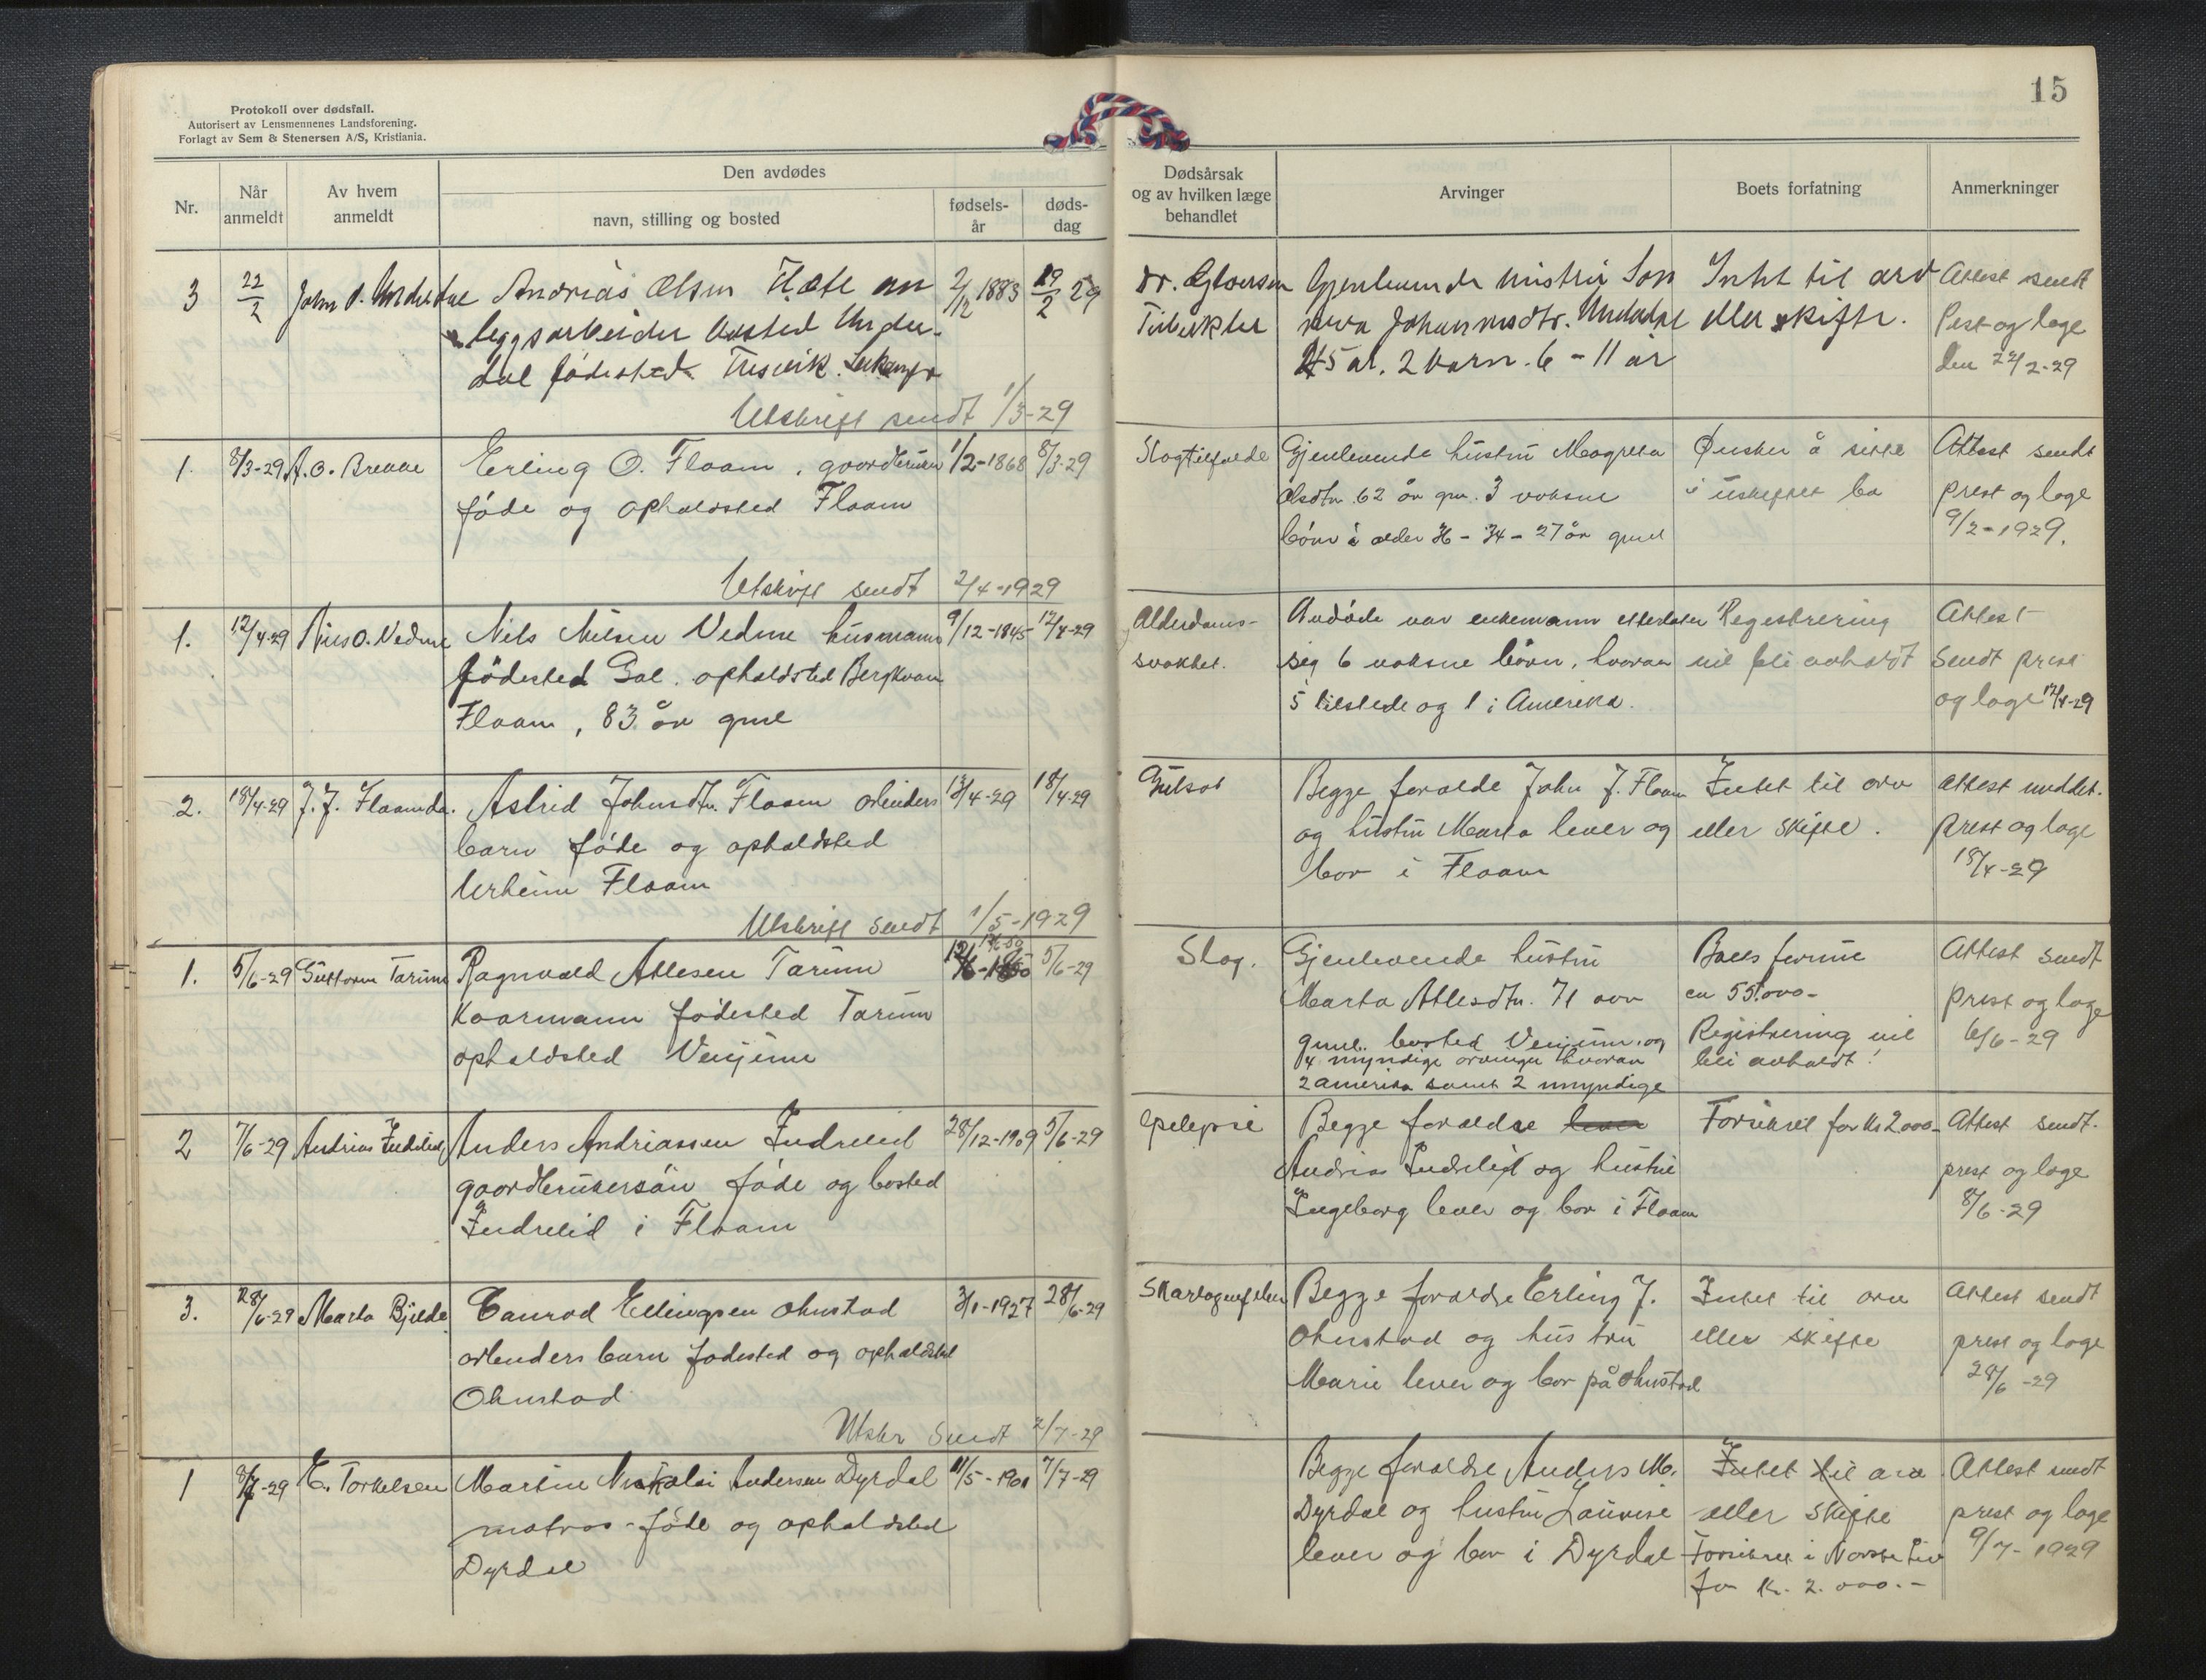 15
Protokoll over dødsfall.
Autorisert av Lensmennenes Landsforening.
Forlagt av Sem & Stenersen A/S, Kristiania.
Nr.
Når anmeldt
Av hvem anmeldt
Den avdødes
navn, stilling og bosted
fødsels-år
døds-dag
Dødsårsak og av hvilken læge behandlet
Arvinger
Boets forfatning
Anmerkninger
3 22/2 John Andrias Olsen an 2/12 1883 19/2 29
leggsarbeider bosted Under-
dal födested Fresvik.
Utskrift sendt 1/3-29
dr.
Gjenlevende
Johannesdtr. Undedal
45 år. 2 barn. 6 - 11 år
Intet til arv
eller skifte.
Attest sendt
Pest og læge
den 22/2-29
1. 8/3-29 A. O. Brekke Erling O. Flaam, gaardbruker 1/2-1868 8/3-29
föde og opholdsted Flaam
Utskrift sendt 2/4-1929
Slagtilfælde
Gjenlevende hustru Magreta
Olsdtr. 62 år gm. 3 voksne
börn i alder 36 - 34 - 27 år gml
Ønsker å sitte
i uskiftet bo
Attest sendt
prest og læge
9/2-1929.
1. 12/4-29 Nils O. Vedme Nils Nilsen Vedme husmann 9/12-1845 12/4-29
födested Gol. opholdsted Bergkvam
Flaam, 83 år gml
Alderdoms-
svakhet.
Avdöde var enkemann etterlater
sig 6 voksne börn, hvorav
5 tilstede og 1 i Amerika.
Regestrering
vil bli avholdt
Attest
sendt prest
og læge 12/4-29
2. 18/4-29 J. J. Flaamda. Astrid Johnsdtr. Flaam arbeiders 13/4-29 18/4-29
barn föde og opholdsted
Urheim Flaam
Utskrift sendt 1/5-1929
Gulsot
Begge foralde John J. Flaam
og hustru Marta lever og
bor i Flaam
Intet til arv
eller skifte.
Attest meddelt.
prest og læge
18/4-29
1. 5/6-29 Guttorm Tarum Ragnvald Atlesen Tarum 5/6-29
Kaarmann födested Tarum
opholdsted Venjum
Slag.
Gjenlevende hustru
Marta Atlesdtr. 71 aar
gml. bosted Venjum, og
4 myndige arvinger hvorav
2 amerika samt 2 umyndige
Boets formue
ca 55.000-
Registrering vil
bli avholdt!
Attest sendt
prest og læge
6/6-29
2 7/6-29 Andrias Indrelid Anders Andriassen Indrelid 28/12-1909 5/6-29
gaardbrukersön föde og bosted
Indrelid i Flaam
Epelepsie
Begge foraldre lever
Andrias Indrelid og hustru
Ingeborg lever og bor i Flaam
Forsikret for Kr 2000-
Attest sendt.
prest og læge
8/6-29
3. 28/6-29 Marta Bjelde Canrad Ellingsen Ohnstad 3/1-1927 28/6-29
arbeiders barn födested og opholdsted
Ohnstad
Utskr sendt 2/7-29
Skarlagensfeber
Begge foraldre Erling J.
Ohnstad og hustru
Marie lever og bor på Ohnstad
Intet til arv
eller skifte
Attest sendt
prest og læge
28/6-29
1 8/7-29 E. Torkelsen Martin Nikolai Andersen Dyrdal 11/5-1901 7/7-29
matros - föde og opholdsted
Dyrdal
Begge foraldre Anders M.
Dyrdal og hustru Lauvise
lever og bor i Dyrdal
Intet til arv
eller skifte
Forsikret i Norske Liv
for Kr. 2.000.-
Attest sendt
prest og læge
9/7-1929